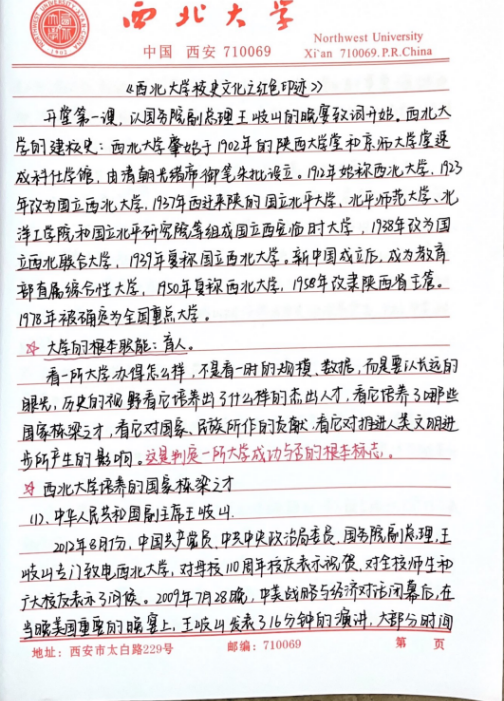 西北大学
中国 西安 710069
Northwest University
Xi'an 710069.P.R.China
《西北大学校史文化之红色印迹》
开堂第一课，以国务院副总理王岐山的晚宴致词开始。西北大
学的建校史：西北大学肇始于1902年的陕西大学堂和京师大学堂速
成科仕学馆，由清朝光绪帝御笔朱批设立。1912年始称西北大学，1923
年改为国立西北大学，1937年西迁来陕的国立北平大学、北平师范大学、北
洋工学院和国立北平研究院等组成国立西安临时大学，1938年改为国
立西北联合大学，1939年复称国立西北大学。新中国成立后，成为教育
部直属综合性大学，1950年复称西北大学，1958年改隶陕西省主管。
1978年被确定为全国重点大学。
☆ 大学的根本职能：育人。
看一所大学办得怎么样，不是看一时的规模、数据，而是要以长远的
眼光，历史的视野看它培养出了什么样的杰出人才，看它培养了哪些
国家栋梁之才，看它对国家、民族所作的贡献，看它对推进人类文明进
步所产生的影响。这是判定一所大学成功与否的根本标志。
☆ 西北大学培养的国家栋梁之才
(1)、中华人民共和国副主席王岐山.
2012年8月份，中国共产党员、中共中央政治局委员、国务院副总理，王
岐山专门致电西北大学，对母校110周年校庆表示祝贺，对全校师生和
广大校友表示了问候。2009年7月28晚，中美战略与经济对话闭幕后，在
当晚美国重要的晚宴上，王岐山发表了16分钟的演讲，大部分时间
地址：西安市太白路229号
邮编：710069
第 页